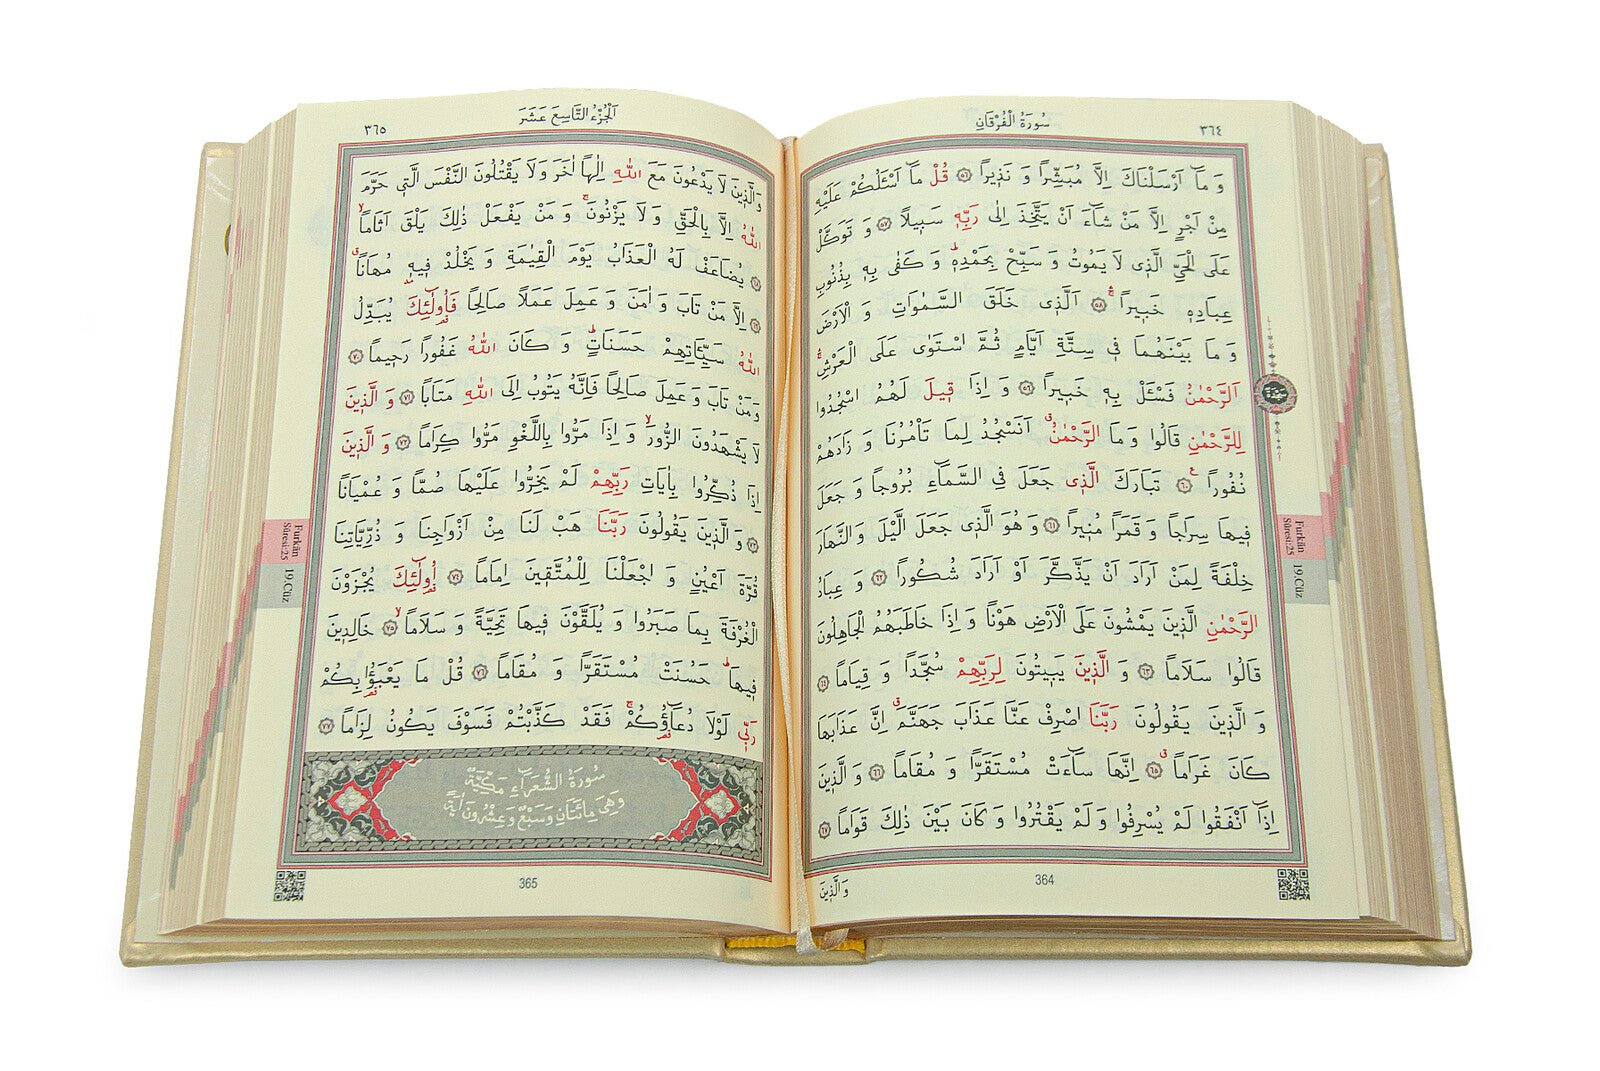 ٣٦٤
سُورَةُ الْفُرْقَانِ
وَ مَٓا اَرْسَلْنَاكَ اِلَّا مُبَشِّرًا وَ نَذ۪يرًا ﴿٥٦﴾ قُلْ مَٓا اَسْـَٔلُكُمْ عَلَيْهِ
مِنْ اَجْرٍ اِلَّا مَنْ شَٓاءَ اَنْ يَتَّخِذَ اِلٰى رَبِّه۪ سَب۪يلًا ﴿٥٧﴾ وَ تَوَكَّلْ
عَلَى الْحَيِّ الَّذ۪ى لَا يَمُوتُ وَ سَبِّحْ بِحَمْدِه۪ۜ وَ كَفٰى بِه۪ بِذُنُوبِ
عِبَادِه۪ خَب۪يرًاۚ ﴿٥٨﴾ اَلَّذ۪ى خَلَقَ السَّمٰوَاتِ وَ الْاَرْضَ
وَ مَا بَيْنَهُمَا ف۪ى سِتَّةِ اَيَّامٍ ثُمَّ اسْتَوٰى عَلَى الْعَرْشِۚ
اَلرَّحْمٰنُ فَسْـَٔلْ بِه۪ خَب۪يرًا ﴿٥٩﴾ وَ اِذَا ق۪يلَ لَهُمُ اسْجُدُوا
لِلرَّحْمٰنِ قَالُوا وَ مَا الرَّحْمٰنُۗ اَنَسْجُدُ لِمَا تَأْمُرُنَا وَ زَادَهُمْ
نُفُورًا ﴿٦٠﴾ تَبَارَكَ الَّذ۪ى جَعَلَ فِى السَّمَٓاءِ بُرُوجًا وَ جَعَلَ
ف۪يهَا سِرَاجًا وَ قَمَرًا مُن۪يرًا ﴿٦١﴾ وَ هُوَ الَّذ۪ى جَعَلَ الَّيْلَ وَ النَّهَارَ
خِلْفَةً لِمَنْ اَرَادَ اَنْ يَذَّكَّرَ اَوْ اَرَادَ شُكُورًا ﴿٦٢﴾ وَ عِبَادُ
الرَّحْمٰنِ الَّذ۪ينَ يَمْشُونَ عَلَى الْاَرْضِ هَوْنًا وَ اِذَا خَاطَبَهُمُ الْجَاهِلُونَ
قَالُوا سَلَامًا ﴿٦٣﴾ وَ الَّذ۪ينَ يَب۪يتُونَ لِرَبِّهِمْ سُجَّدًا وَ قِيَامًا ﴿٦٤﴾
وَ الَّذ۪ينَ يَقُولُونَ رَبَّنَا اصْرِفْ عَنَّا عَذَابَ جَهَنَّمَۗ اِنَّ عَذَابَهَا
كَانَ غَرَامًاۗ ﴿٦٥﴾ اِنَّهَا سَٓاءَتْ مُسْتَقَرًّا وَ مُقَامًا ﴿٦٦﴾ وَ الَّذ۪ينَ
اِذَٓا اَنْفَقُوا لَمْ يُسْرِفُوا وَ لَمْ يَقْتُرُوا وَ كَانَ بَيْنَ ذٰلِكَ قَوَامًا ﴿٦٧﴾
وَ الَّذ۪ينَ
364
Furkân
Sûresi:25
19.Cüz
٣٦٥
اَلْجُزْءُ التَّاسِعَ عَشَرَ
وَ الَّذ۪ينَ لَا يَدْعُونَ مَعَ اللّٰهِ اِلٰهًا اٰخَرَ وَ لَا يَقْتُلُونَ النَّفْسَ الَّت۪ى حَرَّمَ
اللّٰهُ اِلَّا بِالْحَقِّ وَ لَا يَزْنُونَۚ وَ مَنْ يَفْعَلْ ذٰلِكَ يَلْقَ اَثَامًاۙ
﴿٦٨﴾ يُضَاعَفْ لَهُ الْعَذَابُ يَوْمَ الْقِيٰمَةِ وَ يَخْلُدْ ف۪يه۪ مُهَانًاۗ
﴿٦٩﴾ اِلَّا مَنْ تَابَ وَ اٰمَنَ وَ عَمِلَ عَمَلًا صَالِحًا فَاُولٰٓئِكَ يُبَدِّلُ
اللّٰهُ سَيِّـَٔاتِهِمْ حَسَنَاتٍۜ وَ كَانَ اللّٰهُ غَفُورًا رَح۪يمًا ﴿٧٠﴾
وَ مَنْ تَابَ وَ عَمِلَ صَالِحًا فَاِنَّهُ يَتُوبُ اِلَى اللّٰهِ مَتَابًا ﴿٧١﴾ وَ الَّذ۪ينَ
لَا يَشْهَدُونَ الزُّورَۙ وَ اِذَا مَرُّوا بِاللَّغْوِ مَرُّوا كِرَامًا ﴿٧٢﴾ وَ الَّذ۪ينَ
اِذَا ذُكِّرُوا بِاٰيَاتِ رَبِّهِمْ لَمْ يَخِرُّوا عَلَيْهَا صُمًّا وَ عُمْيَانًا
﴿٧٣﴾ وَ الَّذ۪ينَ يَقُولُونَ رَبَّنَا هَبْ لَنَا مِنْ اَزْوَاجِنَا وَ ذُرِّيَّاتِنَا
قُرَّةَ اَعْيُنٍ وَ اجْعَلْنَا لِلْمُتَّق۪ينَ اِمَامًا ﴿٧٤﴾ اُولٰٓئِكَ يُجْزَوْنَ
الْغُرْفَةَ بِمَا صَبَرُوا وَ يُلَقَّوْنَ ف۪يهَا تَحِيَّةً وَ سَلَامًاۙ ﴿٧٥﴾ خَالِد۪ينَ
ف۪يهَاۜ حَسُنَتْ مُسْتَقَرًّا وَ مُقَامًا ﴿٧٦﴾ قُلْ مَا يَعْبَؤُا بِكُمْ
رَبّ۪ى لَوْلَا دُعَٓاؤُكُمْۚ فَقَدْ كَذَّبْتُمْ فَسَوْفَ يَكُونُ لِزَامًا ﴿٧٧﴾
سُورَةُ الشُّعَرَٓاءِ مَكِّيَّةٌ
وَهِىَ مِائَتَانِ وَسَبْعٌ وَعِشْرُونَ اٰيَةً
365
Furkân
Sûresi:25
19.Cüz